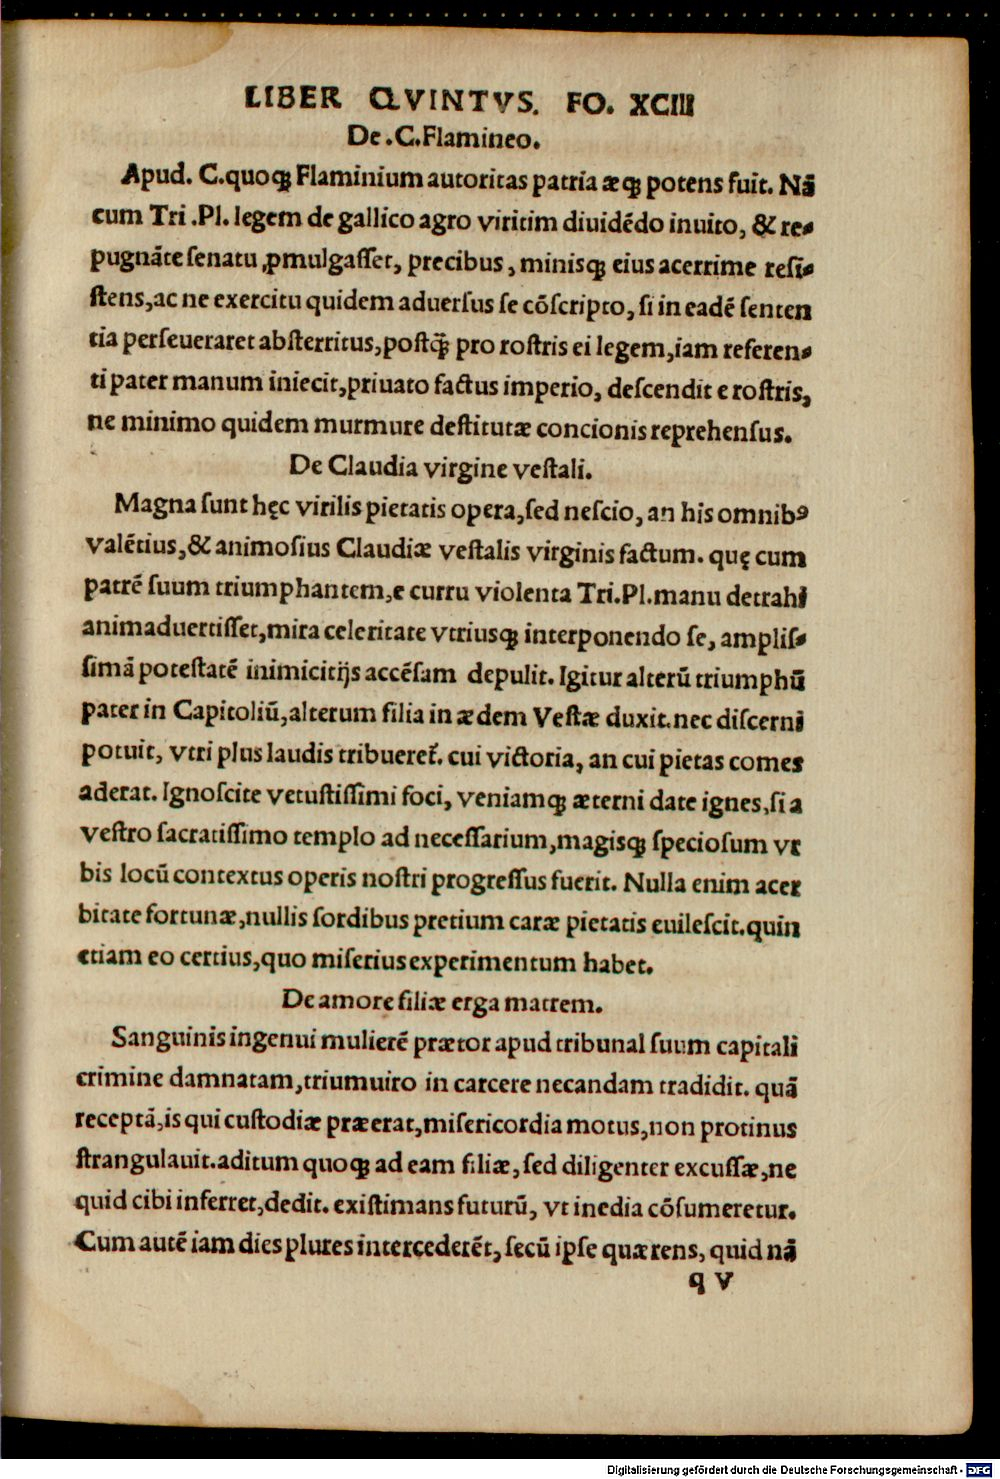 LIBER QVINTVS. FO. XCIII
De .C.Flamineo.
Apud. C.quoqꝫ Flaminium autoritas patria æqꝫ potens fuit. Nã
cum Tri .Pl. legem de gallico agro viritim diuidẽdo inuito, & re-
pugnãte ſenatu ꝓmulgaſſet, precibus, minisqꝫ eius acerrime reſi-
ſtens,ac ne exercitu quidem aduerſus ſe cõſcripto, ſi in eadẽ ſenten
tia perſeueraret abſterritus,poſtq̃ꝫ pro roſtris ei legem,iam referen-
ti pater manum iniecit,priuato factus imperio, deſcendit e roſtris,
ne minimo quidem murmure deſtitutæ concionis reprehenſus.
De Claudia virgine veſtali.
Magna ſunt hęc virilis pietatis opera,ſed neſcio, an his omnibꝰ
valẽtius,& animoſius Claudiæ veſtalis virginis factum. quę cum
patrẽ ſuum triumphantem,e curru violenta Tri.Pl.manu detrahi
animaduertiſſet,mira celeritate vtriusqꝫ interponendo ſe, ampliſ-
ſimã poteſtatẽ inimicitijs accẽſam depulit. Igitur alterũ triumphũ
pater in Capitoliũ,alterum filia in ædem Veſtæ duxit.nec diſcerni
potuit, vtri plus laudis tribueret̃. cui victoria, an cui pietas comes
aderat. Ignoſcite vetuſtiſſimi foci, veniamqꝫ æterni date ignes,ſi a
veſtro ſacratiſſimo templo ad neceſſarium,magisqꝫ ſpecioſum vr
bis locũ contextus operis noſtri progreſſus fuerit. Nulla enim acer
bitate fortunæ,nullis ſordibus pretium caræ pietatis euileſcit.quin
etiam eo certius,quo miſerius experimentum habet.
De amore filiæ erga matrem.
Sanguinis ingenui mulierẽ prætor apud tribunal ſuum capitali
crimine damnatam,triumuiro in carcere necandam tradidit. quã
receptã,is qui cuſtodiæ præerat,miſericordia motus,non protinus
ſtrangulauit.aditum quoqꝫ ad eam filiæ, ſed diligenter excuſſæ,ne
quid cibi inferret,dedit. exiſtimans futurũ, vt inedia cõſumeretur.
Cum autẽ iam dies plures intercederẽt, ſecũ ipſe quærens, quid nã
q v
Digitalisierung gefördert durch die Deutsche Forschungsgemeinschaft - DFG